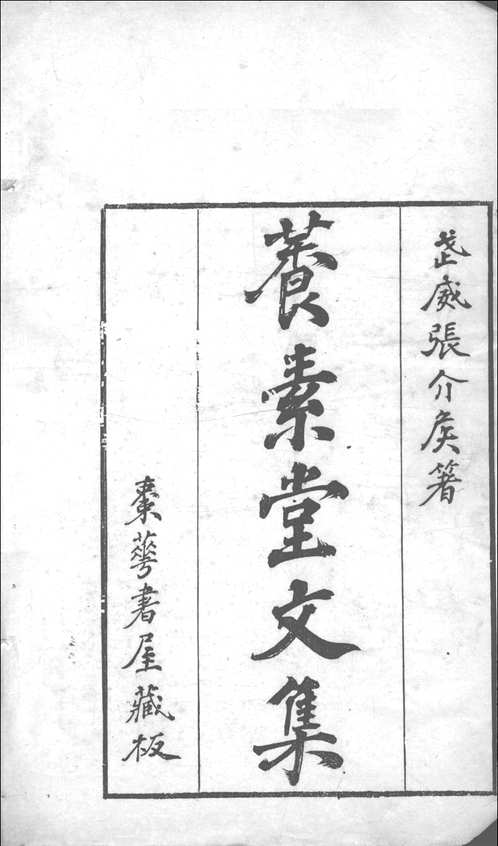 武威張介矦箸
養素堂文集
棗華書屋藏板